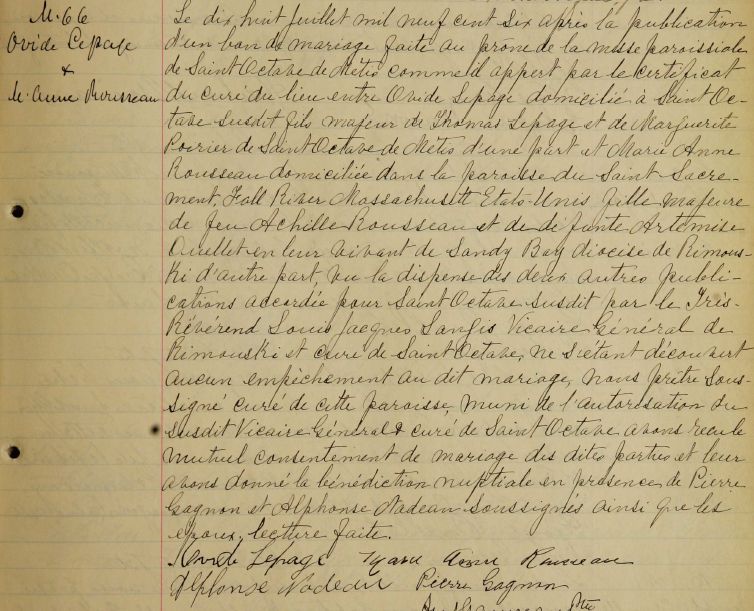 M. 66
Ovide Lepage
&
M. Anne Rousseau
Le dix huit juillet mil neuf cent six après la publication
d'un ban de mariage faite au prone de la messe paroissiale
de Saint Octave de Métis comme il appert par le certificat
du curé du lieu entre Ovide Lepage domicilié à Saint Oc-
tave susdit fils majeur de Thomas Lepage et de Marguerite
Poirier de Saint Octave de Métis d'une part et Marie Anne
Rousseau domiciliée dans la paroisse du Saint Sacre-
ment, Fall River Massachusett Etats-Unis fille majeure
de feu Achille Rousseau et de défunte Artémise
Ouellet en leur vivant de Sandy Bay diocise de Rimous-
ki d'autre part, vu la dispense des deux autres publi-
cations accordée pour Saint Octave susdit par le Très-
Révérend Louis Jacques Langis Vicaire Général de
Rimouski et curé de Saint Octave, ne s'étant découvert
aucun empêchement au dit mariage, nous prêtre sous-
signé curé de cette paroisse, muni de l'autorisation du
susdit Vicaire Général & curé de Saint Octave avons reçu le
mutuel consentement de mariage des dites parties et leur
avons donné la bénédiction nuptiale en présence de Pierre
Gagnon et Alphonse Nadeau soussignés ainsi que les
époux, lecture faite.
Ovide Lepage Marie Anne Rousseau
Alphonse Nadeau Pierre Gagnon
Ptre